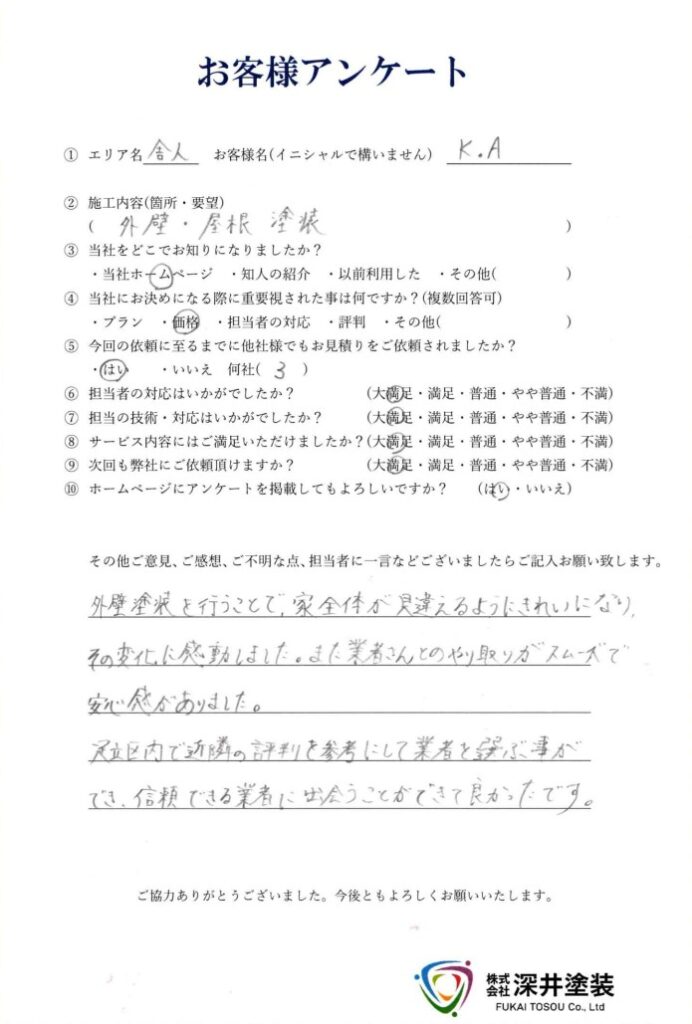 お客様アンケート
① エリア名 舎人 お客様名(イニシャルで構いません) K.A
② 施工内容(箇所・要望)
( 外壁・屋根 塗装 )
③ 当社をどこでお知りになりましたか？
・当社ホームページ ・知人の紹介 ・以前利用した ・その他( )
④ 当社にお決めになる際に重要視された事は何ですか？(複数回答可)
・プラン ・価格 ・担当者の対応 ・評判 ・その他( )
⑤ 今回の依頼に至るまでに他社様でもお見積りをご依頼されましたか？
・はい ・いいえ 何社( 3 )
⑥ 担当者の対応はいかがでしたか？ (大満足・満足・普通・やや普通・不満)
⑦ 担当の技術・対応はいかがでしたか？ (大満足・満足・普通・やや普通・不満)
⑧ サービス内容にはご満足いただけましたか？(大満足・満足・普通・やや普通・不満)
⑨ 次回も弊社にご依頼頂けますか？ (大満足・満足・普通・やや普通・不満)
⑩ ホームページにアンケートを掲載してもよろしいですか？ (はい・いいえ)
その他ご意見、ご感想、ご不明な点、担当者に一言などございましたらご記入お願い致します。
外壁塗装を行うことで、家全体が見違えるようにきれいになり、
その変化に感動しました。また業者さんとのやり取りがスムーズで
安心感がありました。
足立区内で近隣の評判を参考にして業者を選ぶ事が
でき、信頼できる業者に出会うことができて良かったです。
ご協力ありがとうございました。今後ともよろしくお願いいたします。
株式会社 深井塗装
FUKAI TOSOU Co., Ltd